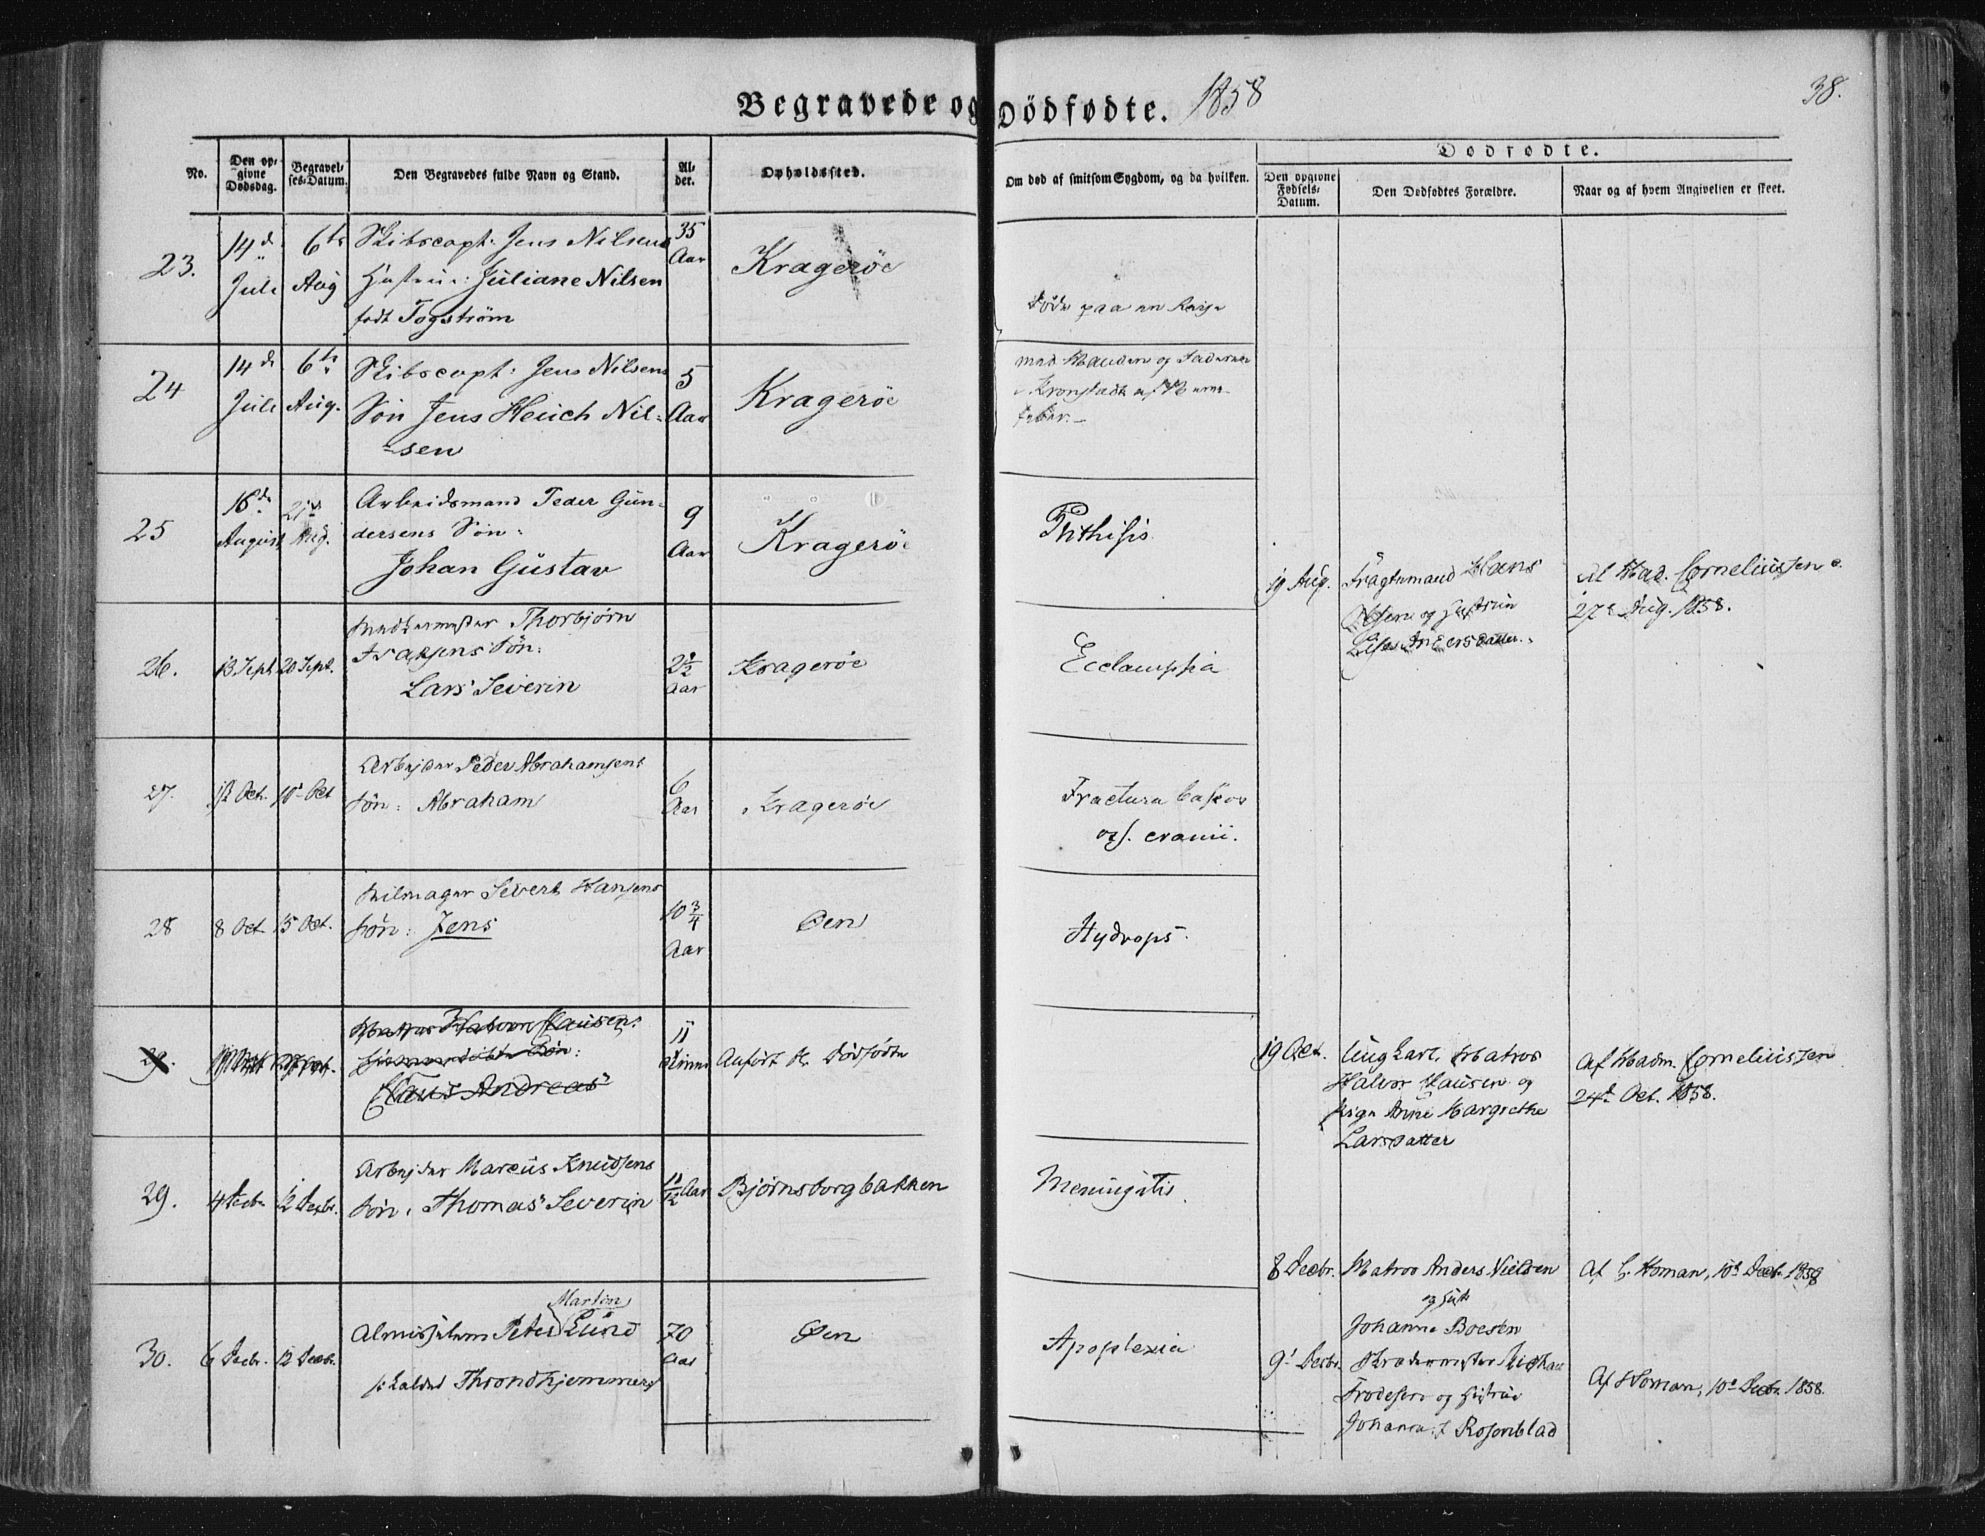 Begravede og Dödfødte. 1858
38.
No.
Den op-
givne
Dødsdag.
Begravel-
ses-Datum.
Den Begravedes fulde Navn og Stand.
Al-
der.
Opholdssted.
Om død af smitsom Sygdom, og da hvilken.
Dødfødte.
Den opgivne
Fødsels-
Datum.
Den Dødfødtes Forældre.
Naar og af hvem Angivelsen er skeet.
23.
14de
Juli
6te
Aug
Skibscapt. Jens Nilsens
Hustrue: Juliane Nilsen
født Fogstrøm
35
Aar
Kragerøe
Døde paa en Reise
24
14de
Juli
6te
Aug.
Skibscapt: Jens Nilsens
Søn Jens Heuch Nil-
-sen
5
Aar
Kragerøe
med Manden og Faderen
i Kronstadt af
feber.
25
16de
August
21de
Aug.
Arbeidsmand Peder Gun-
dersens Søn:
Johan Gustav
9
Aar
Kragerøe
Phthisis
19 Aug.
Fragtemand Hans
Olsen og Hustrue
Andersdatter.
Af Mad. Corneliussen d.
27e Aug. 1858.
26.
13 Sept
20 Sept.
Thorbjørn
Søn:
Lars Severin
2½
Aar
Kragerøe
Ecclampsia
27.
Oct.
10 Oct
Arbejder Peder Abrahamsens
Søn: Abraham
6
Aar
Kragerøe
Fractura baseos
oss. cranii.
28
8 Oct
15 Oct.
Seilmager Sivert Hansens
Søn: Jens
10 3/4
Aar
Øen
Hydrops.
29.
Matros Halvor Clausens
Søn:
Claus Andreas
11
Timer
Anført bl. Dødfødte
19 Oct.
Ungkarl, Matros
Halvor Clausen og
Pige Anne Margrethe
Larsdatter
Af Madm. Corneliussen
24de Oct. 1858.
29.
4 Decbr.
12 Decbr.
Arbejder Marcus Knudsens
Søn, Thomas Severin
11/12 Aar
Bjørnsborgbakken
Meningitis.
8 Decbr.
Matros Anders Nielsen
og Hust.
Johanne Boesen
Af C. Homan, 10de Decbr. 1858
30.
6 Decbr.
12 Decbr.
Martin
Almisselem Peter Lund
kaldet Throndhjemmers
70
Aar
Øen
Apoplexia
9' Decbr.
Michael
Frodesen og Hustrue
Johanna f. Rosenblad
Af Homan, 10de Decbr. 1858.